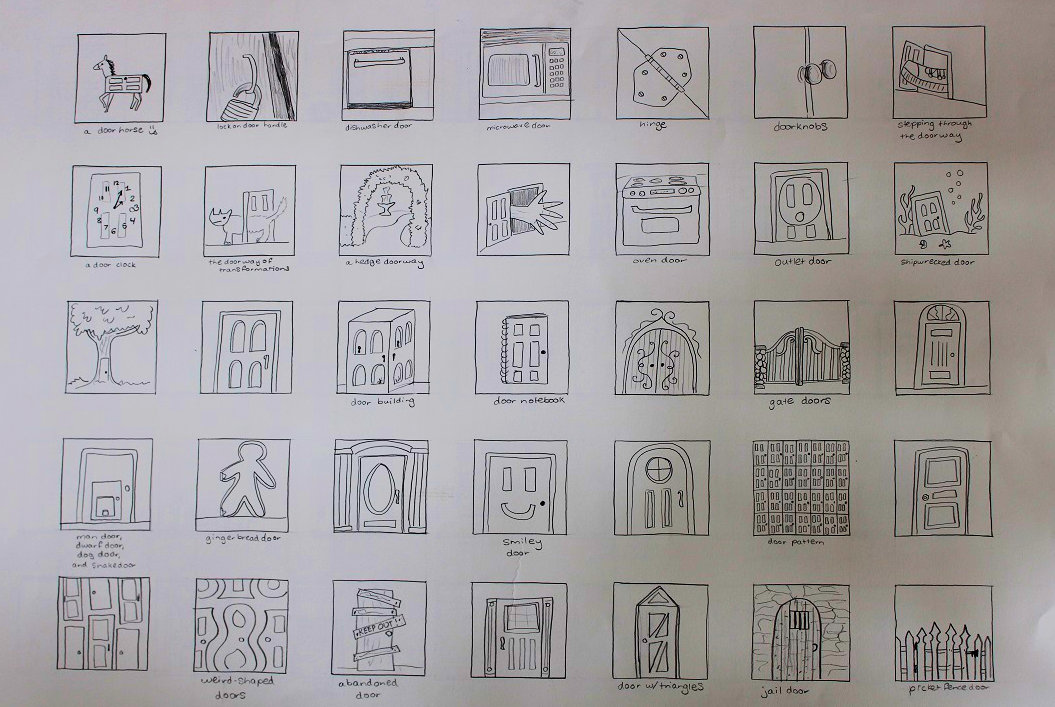 a door horse
lock on door handle
dishwasher door
microwave door
hinge
doorknobs
stepping through
the doorway
12
11
1
2
9
3
8
4
7
6
5
a door clock
the doorway of
transformations
a hedge doorway
oven door
outlet door
shipwrecked door
door building
door notebook
gate doors
man door,
dwarf door,
dog door,
and snake door
gingerbread door
smiley
door
door pattern
weird-shaped
doors
KEEP OUT
abandoned
door
door w/triangles
jail door
picket fence door